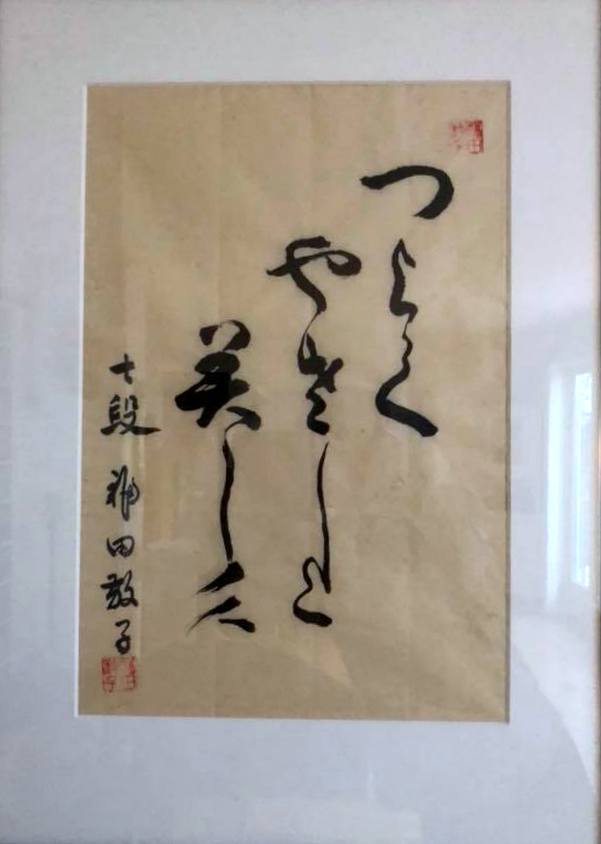 つよく
やさしく
美しく
七段 福田敬子